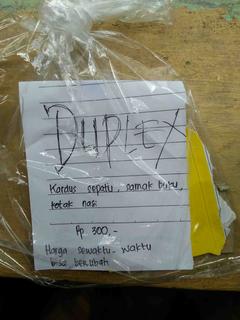 DUPLEX
Kardus sepatu, samak buku,
kotak nasi
Rp 300,-
Harga sewaktu-waktu
bisa berubah